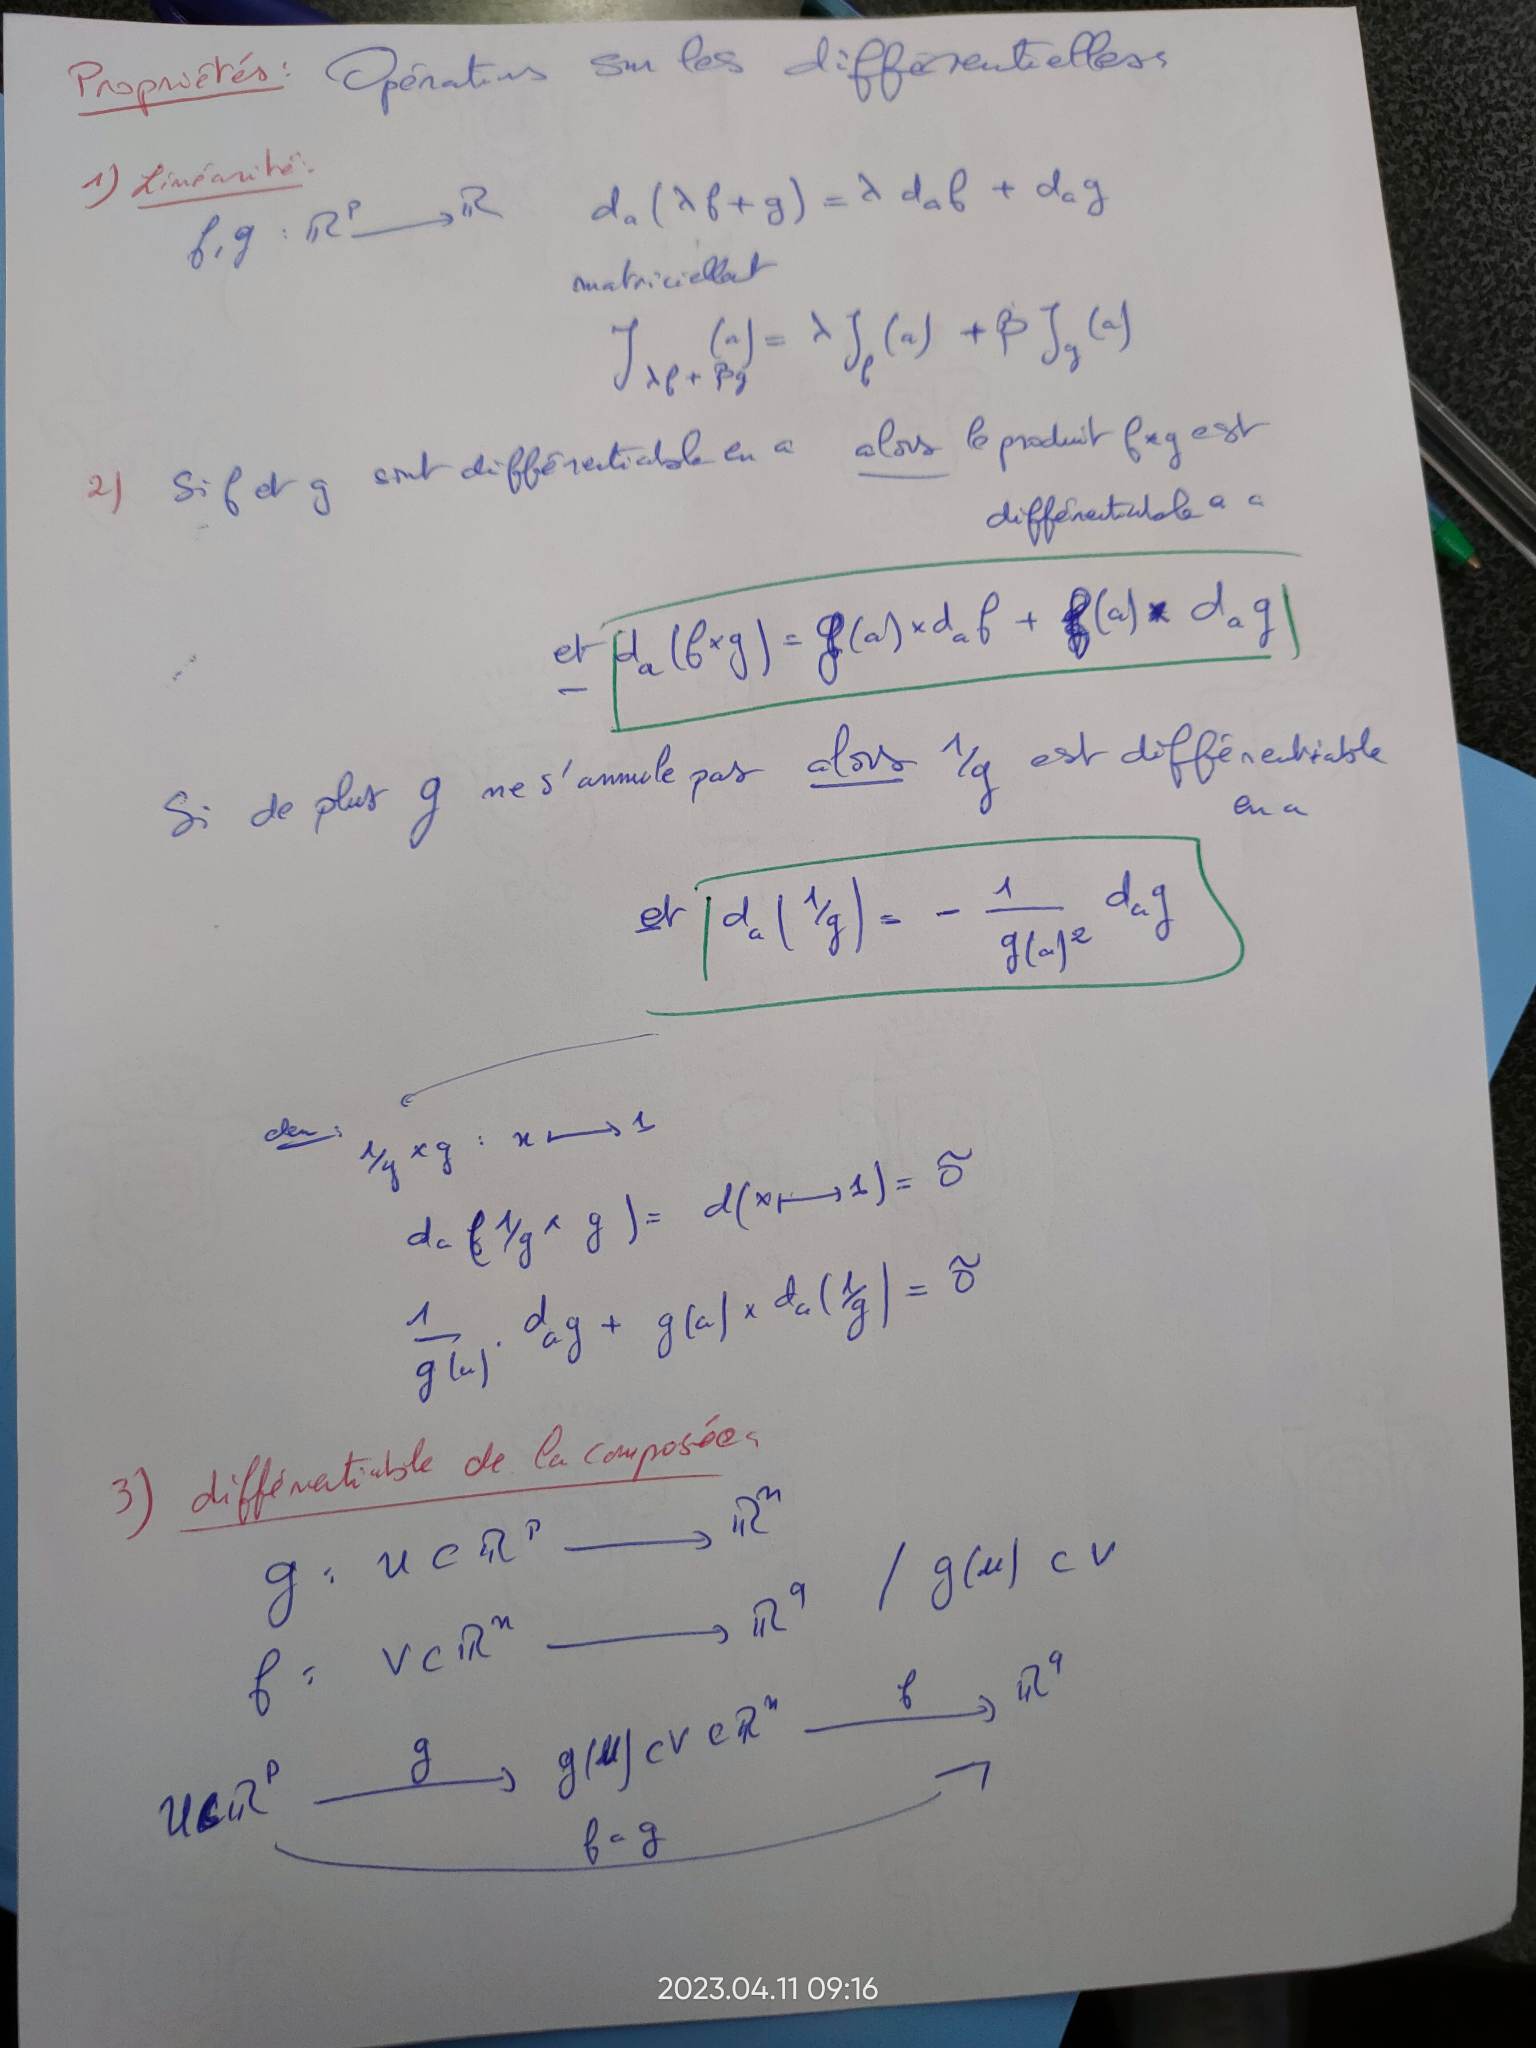 Propriétés: Opérations sur les différentielles
1) Linéarité:
f,g : ℝᵖ ⟶ ℝ   dₐ(λf+g) = λ dₐf + dₐg
matriciellemt
J_{λf+βg}(a) = λ J_f(a) + β J_g(a)
2) Si f et g sont différentiable en a alors le produit f×g est
différentiable a a
et dₐ(f×g) = g(a)×dₐf + f(a)× dₐg
Si de plus g ne s'annule pas alors 1/g est différentiable
en a
et dₐ(1/g) = - 1/g(a)² dₐg
dem: 1/g × g : x ⟼ 1
dₐ(1/g × g) = d(x ⟼ 1) = õ
1/g(a) . dₐg + g(a) × dₐ(1/g) = õ
3) différentiable de la composée:
g : U ⊂ ℝᵖ ⟶ ℝⁿ
f : V ⊂ ℝⁿ ⟶ ℝ^q / g(U) ⊂ V
U ⊂ ℝᵖ ⟶ g(U) ⊂ V ⊂ ℝⁿ ⟶ ℝ^q
g f
f∘g
2023.04.11 09:16